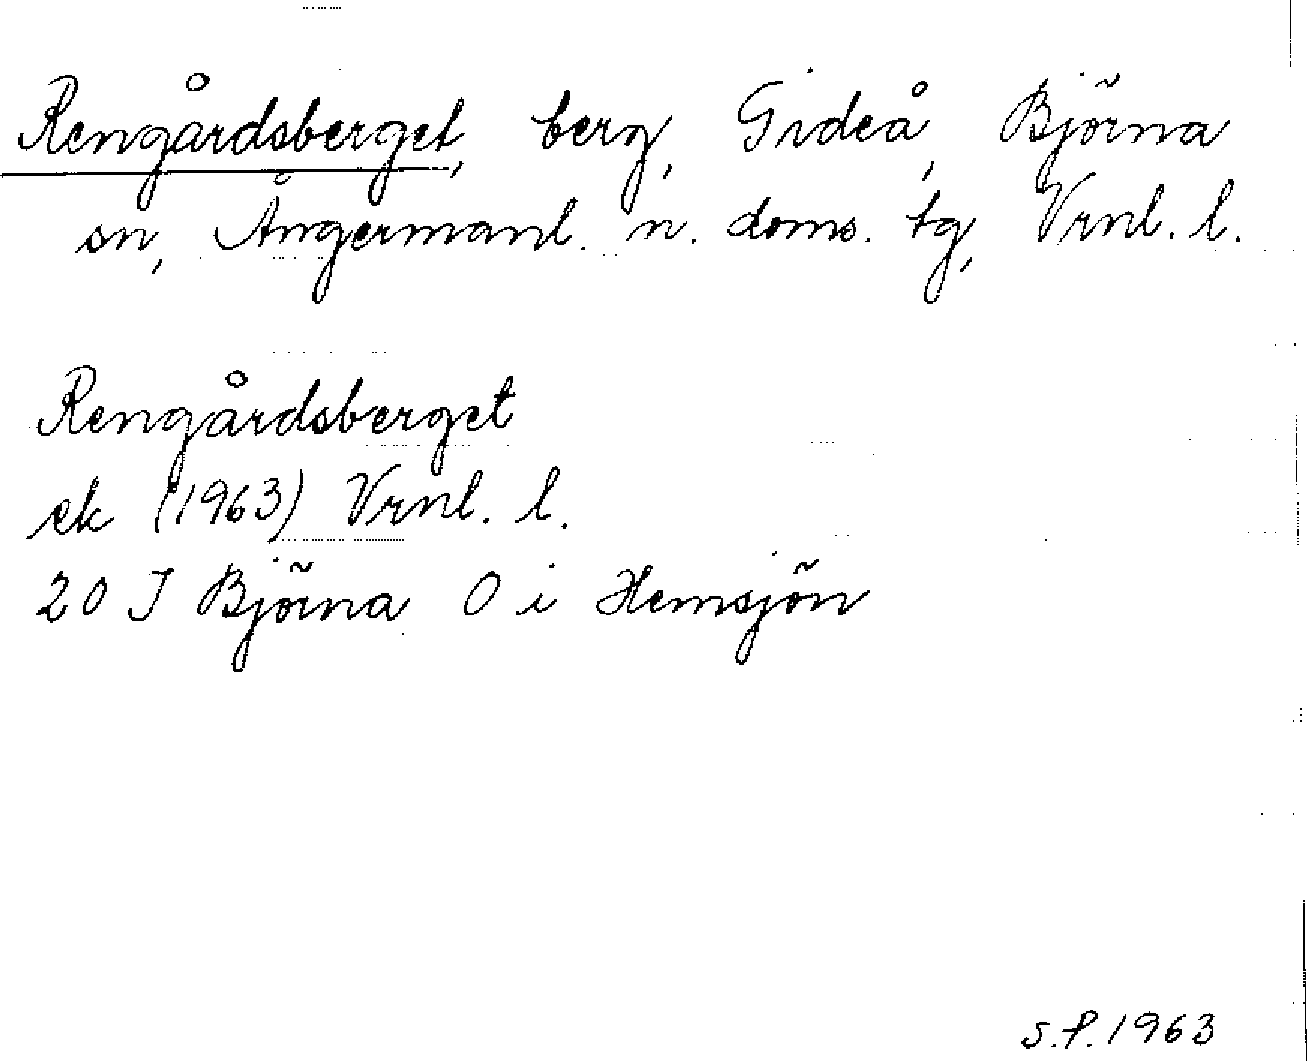 Rengårdsberget, berg, Gideå, Björna
sn, Ångermanl. n. doms. tg, Vrnl. l.
Rengårdsberget
ek (1963) Vrnl. l.
20 J Björna O i Hemsjön
S.P. 1963